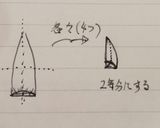 各々(4つ)
2等分にする